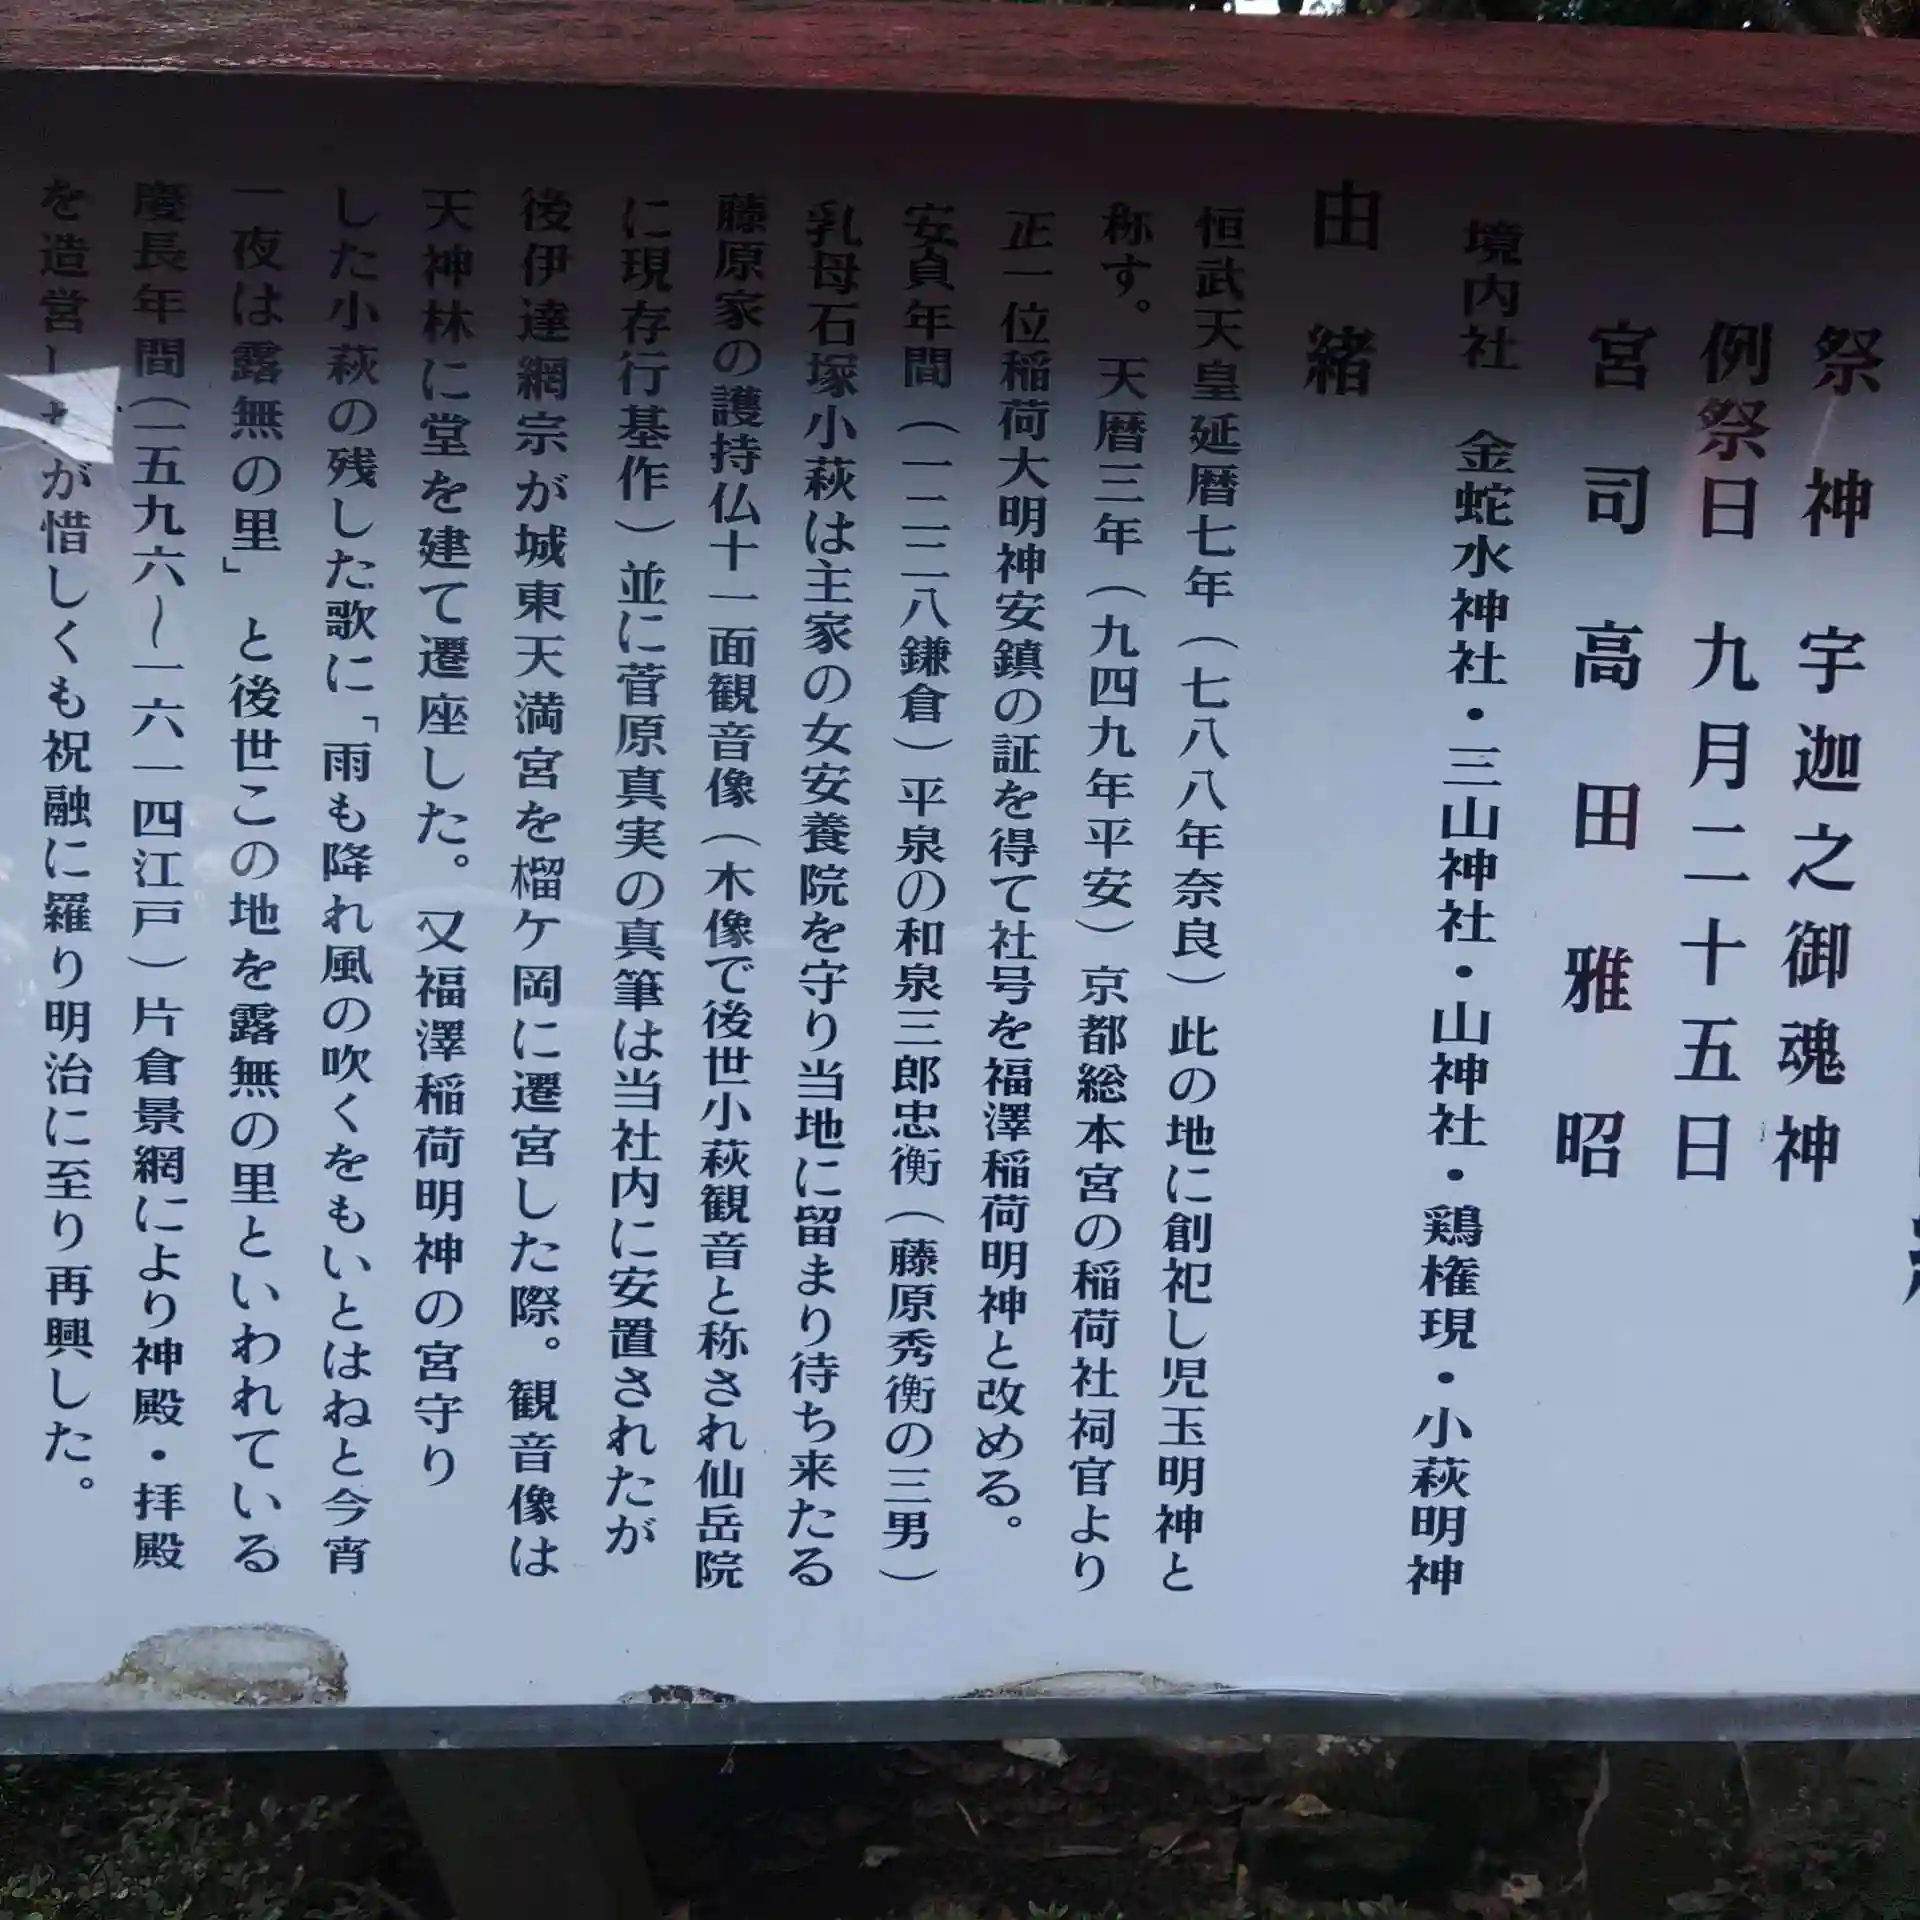 祭神 宇迦之御魂神
例祭日 九月二十五日
宮司 高田雅昭
境内社 金蛇水神社・三山神社・山神社・鶏権現・小萩明神
由緒
恒武天皇延暦七年（七八八年奈良）此の地に創祀し児玉明神と
称す。天暦三年（九四九年平安）京都総本宮の稲荷社祠官より
正一位稲荷大明神安鎮の証を得て社号を福澤稲荷明神と改める。
安貞年間（一二二八鎌倉）平泉の和泉三郎忠衡（藤原秀衡の三男）
乳母石塚小萩は主家の女安養院を守り当地に留まり待ち来たる
藤原家の護持仏十一面観音像（木像で後世小萩観音と称され仙岳院
に現存行基作）並に菅原真実の真筆は当社内に安置されたが
後伊達綱宗が城東天満宮を榴ケ岡に遷宮した際。観音像は
天神林に堂を建て遷座した。又福澤稲荷明神の宮守り
した小萩の残した歌に「雨も降れ風の吹くをもいとはねと今宵
一夜は露無の里」と後世この地を露無の里といわれている
慶長年間（一五九六〜一六一四江戸）片倉景綱により神殿・拝殿
を造営したが惜しくも祝融に羅り明治に至り再興した。